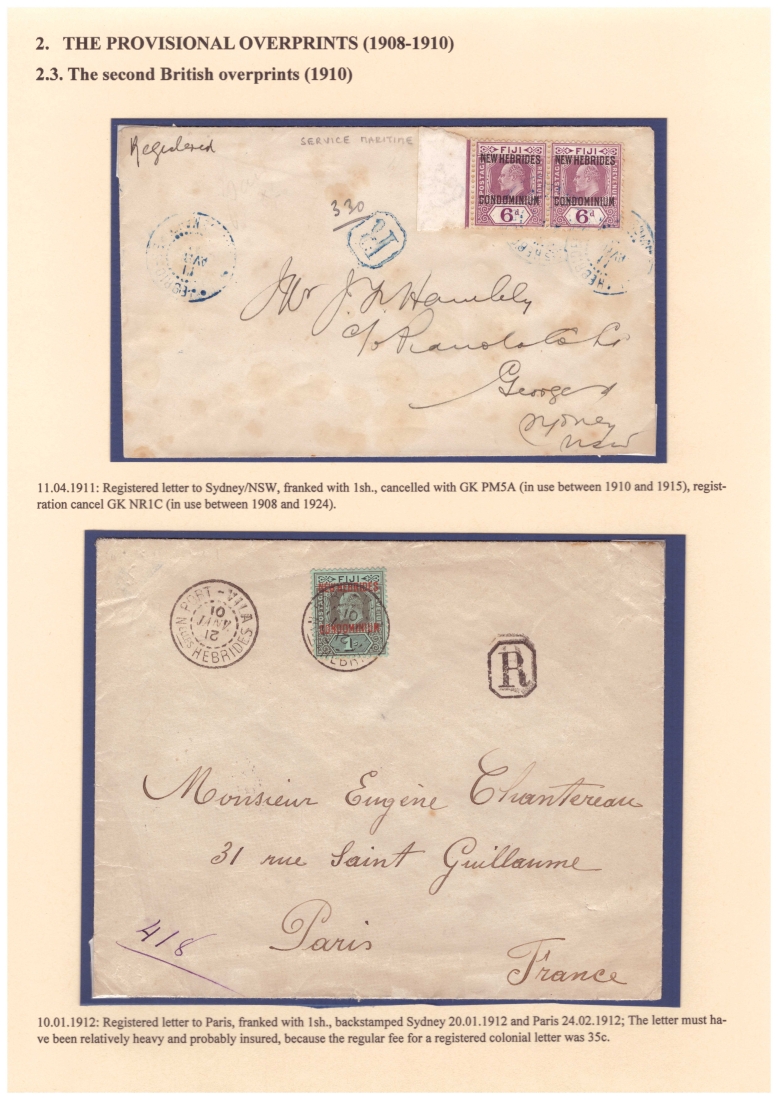 2. THE PROVISIONAL OVERPRINTS (1908-1910)
2.3. The second British overprints (1910)
Registered
SERVICE MARITIME
330
R
FIJI FIJI
NEW HEBRIDES NEW HEBRIDES
POSTAGE REVENUE POSTAGE REVENUE
CONDOMINIUM CONDOMINIUM
6d 6d
11 AVR
Mr J. Hambly
c/o
George
Sydney
NSW
11.04.1911: Registered letter to Sydney/NSW, franked with 1sh., cancelled with GK PM5A (in use between 1910 and 1915), regist-
ration cancel GK NR1C (in use between 1908 and 1924).
PORT-VILA
10
JANV
12
NLLES HEBRIDES
FIJI
NEW HEBRIDES
CONDOMINIUM
1/-
R
Monsieur Eugène Chantereau
31 rue Saint Guillaume
Paris
France
418
10.01.1912: Registered letter to Paris, franked with 1sh., backstamped Sydney 20.01.1912 and Paris 24.02.1912; The letter must ha-
ve been relatively heavy and probably insured, because the regular fee for a registered colonial letter was 35c.